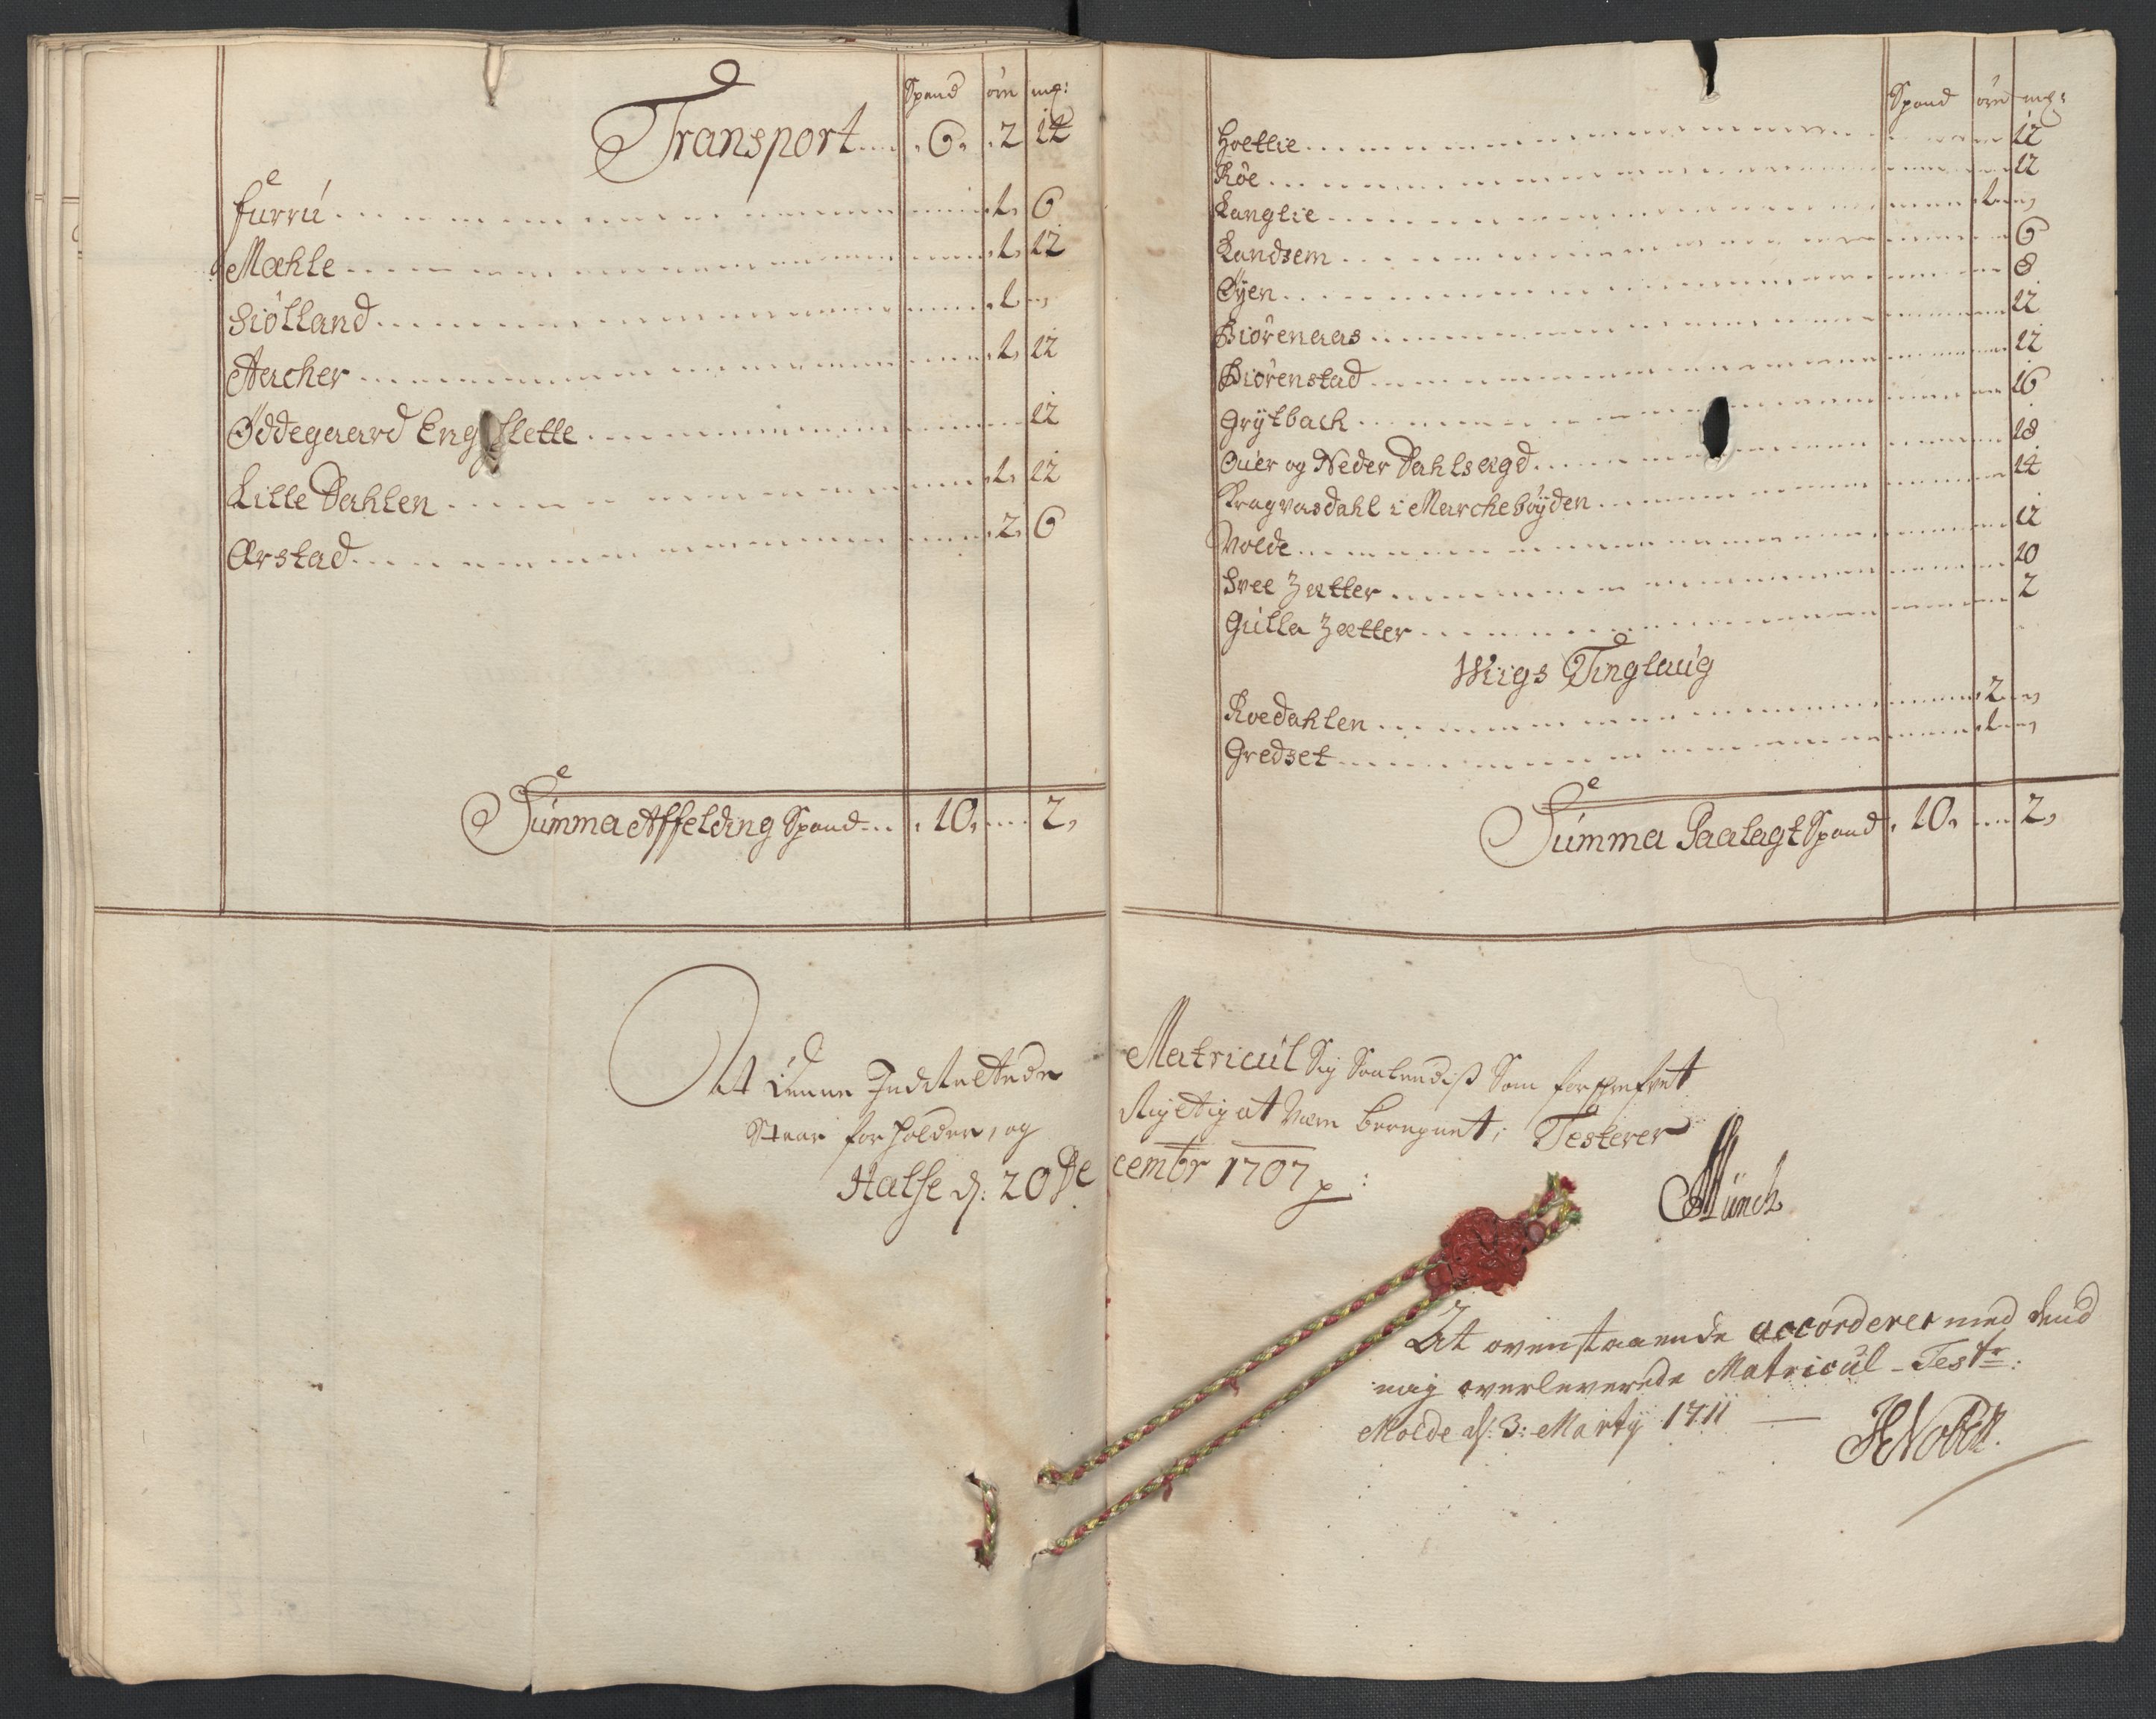 Spand øre mg:
Transport 6 2 14
Furru 1 6
Mæhle 1 12
Siølland 1
Aacher 1 12
Øddegaard Engslette 12
Lille Dahlen 1 12
Ørstad 2 6
Summa Affelding Spand 10 2
Spand øre mg:
Hoellie 12
Røe 12
Langlie 1
Landsem 6
Øyen 8
Biørenaas 12
Biørenstad 12
Grytbach 16
Ouer og Neder Dahlsægd 18
Kragvasdahl i Marchebøyden 14
Volde 12
Svee Zætter 10
Gulla Zætter 2
Wiigs Tinglaug
Roedahlen 2
Gredset 1
Summa Paalagt Spand 10 2
At denne Matricul Sig Saaledis Som forschrefvet
Staar forholder, og Rigtig at Være beregnet; Testerer
Halse d: 20 Decembr 1707
Münch
At ovenstaaende accorderer med dend
mig overleverede Matricul - Testr:
Molde d: 3: Martij 1711